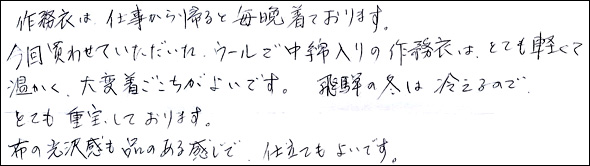 作務衣は、仕事から帰ると毎晩着ております。
今回買わせていただいた、ウールで中綿入りの作務衣は、とても軽くて
温かく、大変着ごこちがよいです。 飛騨の冬は 冷えるので、
とても 重宝しております。
布の光沢感も品のある感じで、仕立てもよいです。